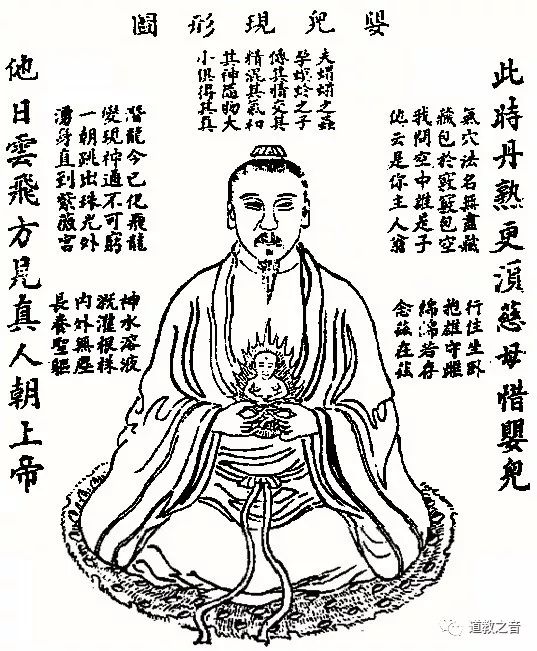 嬰兒現形圖
此時丹熟更須慈母惜嬰兒
氣穴法名無盡藏
藏包於竅竅包空
我問空中誰是子
他云是你主人翁
行住坐臥
抱雄守雌
綿綿若存
念茲在茲
夫蜾蠃之蟲
孕螟蛉之子
傳其情交其
精混其氣和
其神隨物大
小俱得其真
潛龍今已化飛龍
變現神通不可窮
一朝跳出珠光外
湧身直到紫微宮
神水溶液
溉灌根株
內外無塵
長養聖軀
他日雲飛方見真人朝上帝
道教之音